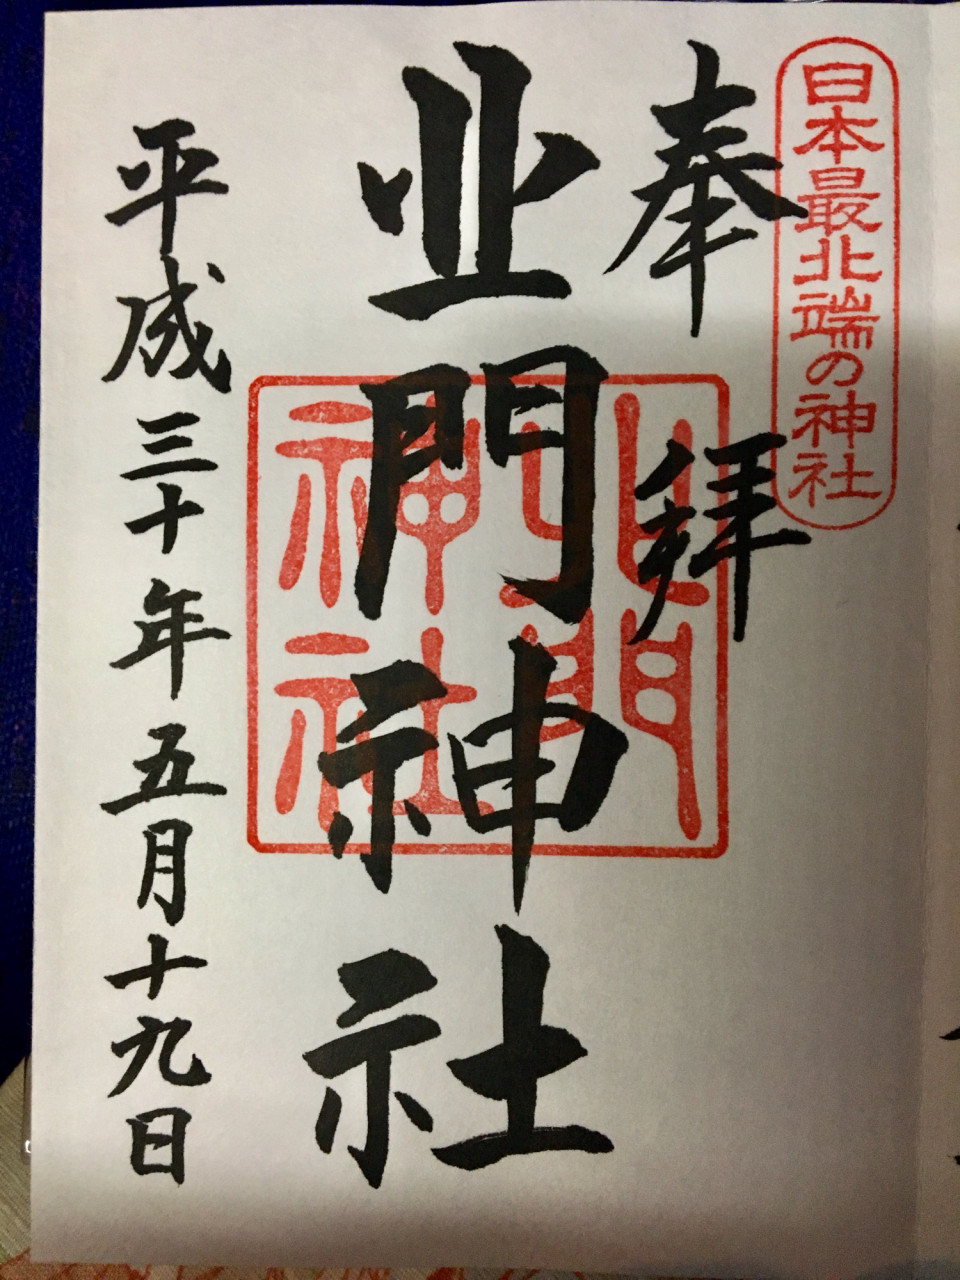 日本最北端の神社
奉拝
北門神社
北門
神社
平成三十年五月十九日